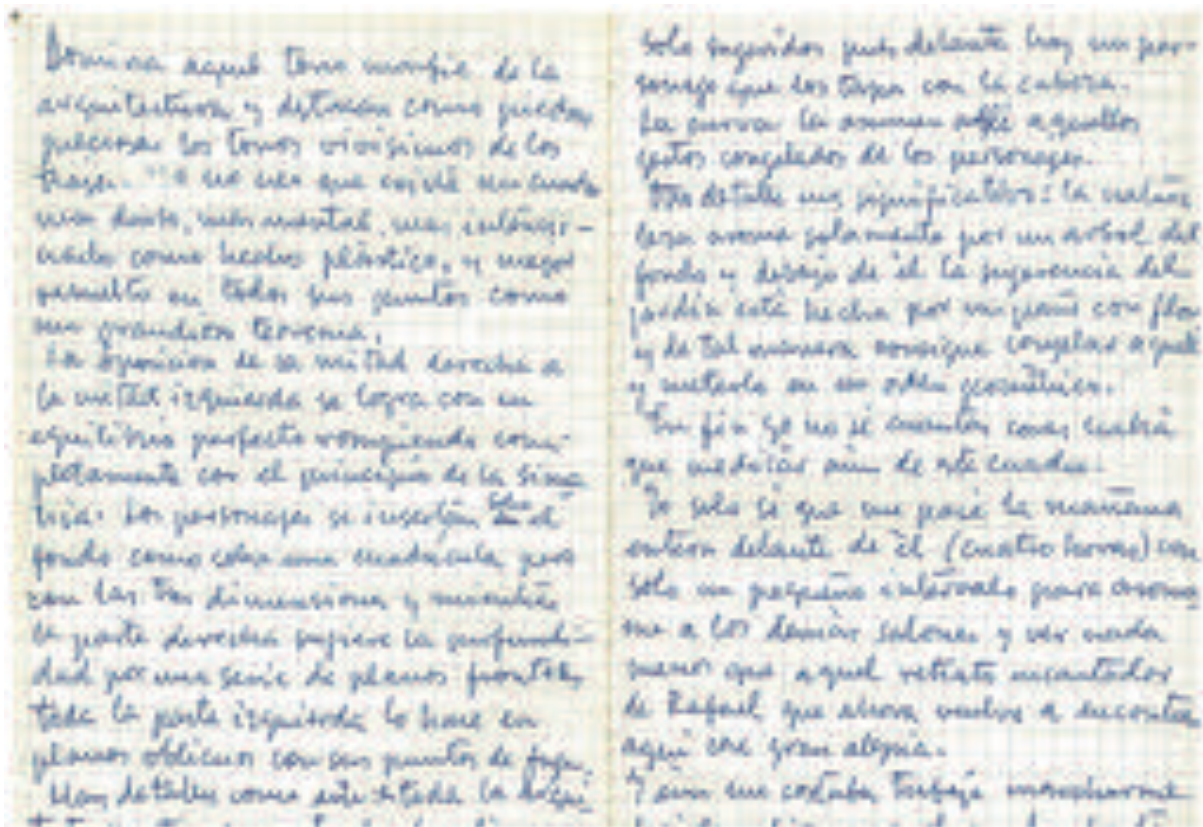 Domina aquel tono marfil de la
arquitectura y destacan como piedras
preciosas los tonos vivisimos de los
trajes. Yo no creo que exista un cuadro
mas denso, mas mental, mas
como hecho plástico, y mejor
resuelto en todos sus puntos como
un grandioso teorema.
La oposicion de su mitad derecha a
la mitad izquierda se logra con un
equilibrio perfecto rompiendo com-
pletamente con el principio de la sime
tria. Los personajes se insertan sobre el
fondo como sobre una cuadricula pero
con las tres dimensiones y mientras
la parte derecha sugiere la profundi-
dad por una serie de planos frontales
toda la parte izquierda lo hace en
planos oblicuos con sus puntos de fuga.
Hay detalles como este: toda la arqui
solo sugeridos pues delante hay un per-
sonaje que los tapa con la cabeza.
La curva la asumen alli aquellos
gestos congelados de los personajes.
Otro detalle muy significativo: la
asoma solamente por un arbol del
fondo y debajo de él la sugerencia del
jardin está hecha por un con
y de tal manera consigue congelar aquello
y meterlo en un orden geométrico.
En fin yo no sé cuantas cosas cabria
que meditar aun de este cuadro.
Yo solo sé que me pasé la mañana
entera delante de él (cuatro horas) con
solo un pequeño intérvalo para asomar
me a los demás salones y ver nada
menos que aquel retrato encantador
de Rafael que ahora vuelvo a encontrar
aqui con gran alegria.
Y aun me costaba trabajo marcharme